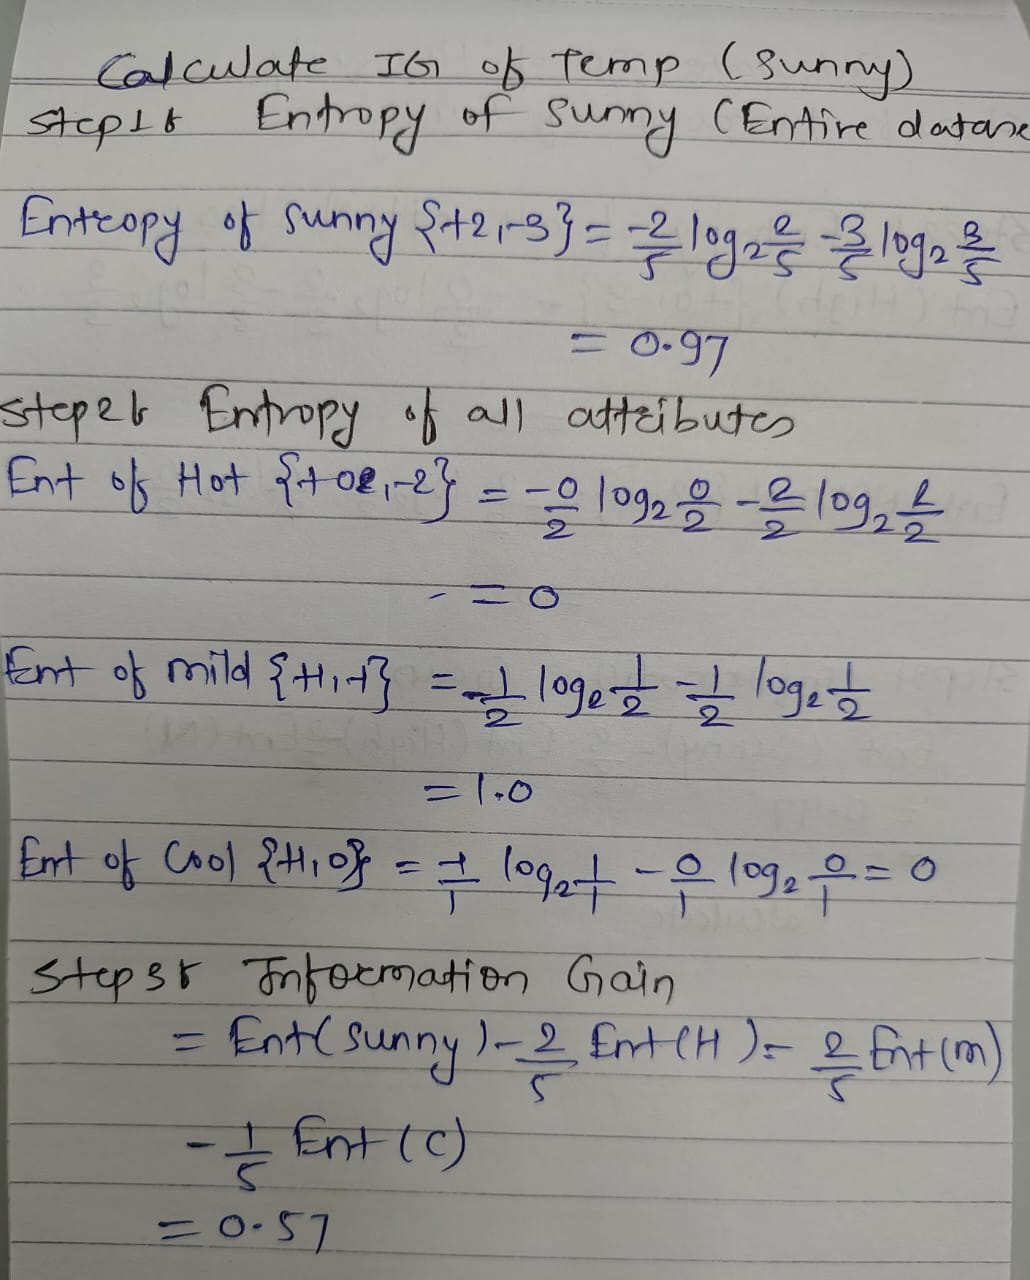 Calculate IG of Temp (Sunny)
Step1: Entropy of Sunny (Entire datase
Entropy of Sunny {+2,-3} = -2/5 log₂ 2/5 -3/5 log₂ 3/5
= 0.97
Step2: Entropy of all attributes
Ent of Hot {+0,-2} = -0/2 log₂ 0/2 -2/2 log₂ 2/2
= 0
Ent of mild {+1,-1} = -1/2 log₂ 1/2 -1/2 log₂ 1/2
= 1.0
Ent of Cool {+1,0} = -1/1 log₂ 1/1 -0/1 log₂ 0/1 = 0
Step3: Information Gain
= Ent(Sunny) - 2/5 Ent(H) - 2/5 Ent(m)
- 1/5 Ent(C)
= 0.57